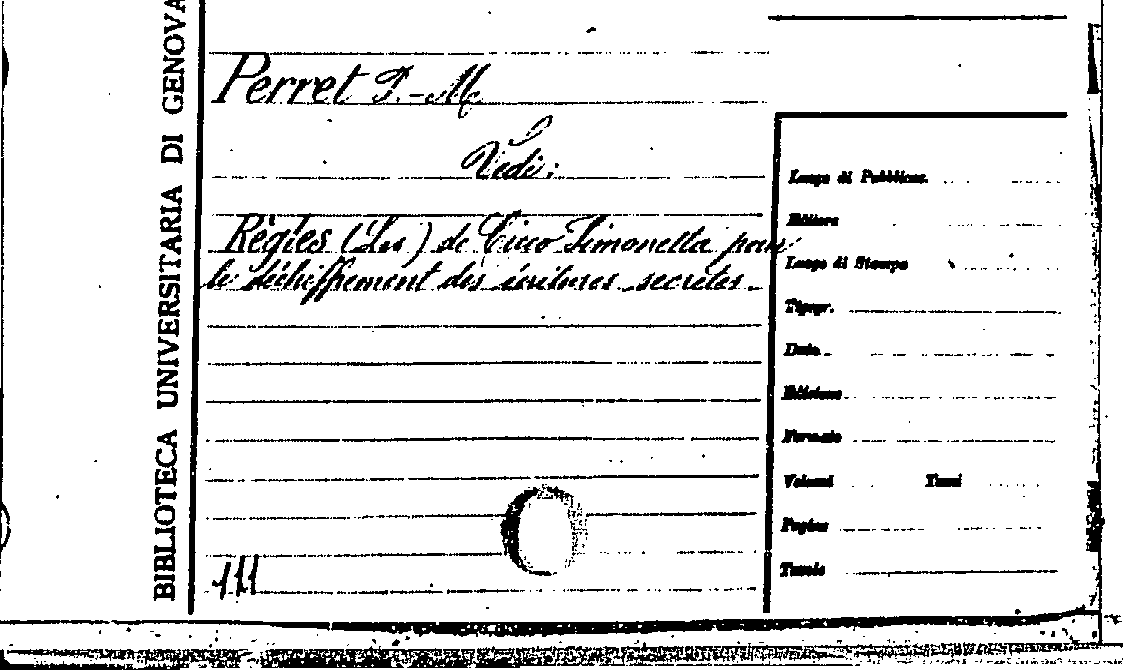 BIBLIOTECA UNIVERSITARIA DI GENOVA
Perret P.-M.
Vedi:
Règles (Les) de Cicco Simonetta pour
le déchiffrement des écritures secrètes.
111
Luogo di Pubblicaz.
Editore
Luogo di Stampa
Tipogr.
Data
Edizione
Formato
Volumi Tomi
Pagine
Tavole